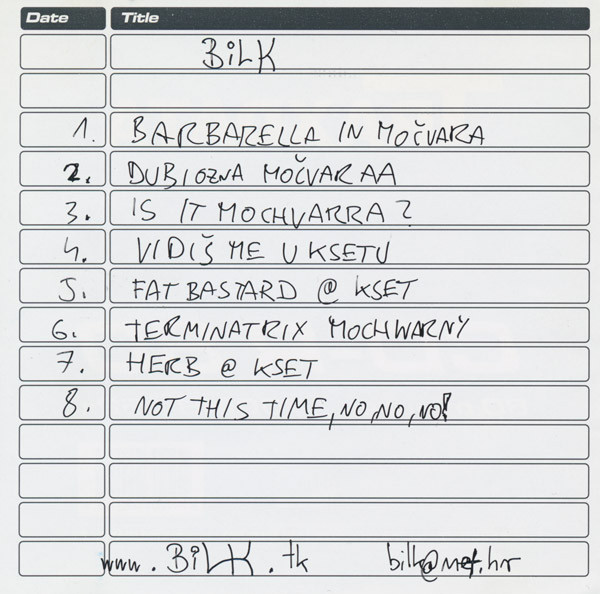 Date Title
BiLK
1. BARBARELLA IN MOČVARA
2. DUBIOZNA MOČVARAA
3. IS IT MOCHVARRA?
4. VIDIŠ ME U KSETU
5. FAT BASTARD @ KSET
6. TERMINATRIX MOCHWARNY
7. HERB @ KSET
8. NOT THIS TIME, NO, NO, NO!
www.BiLK.tk bilk@net.hr